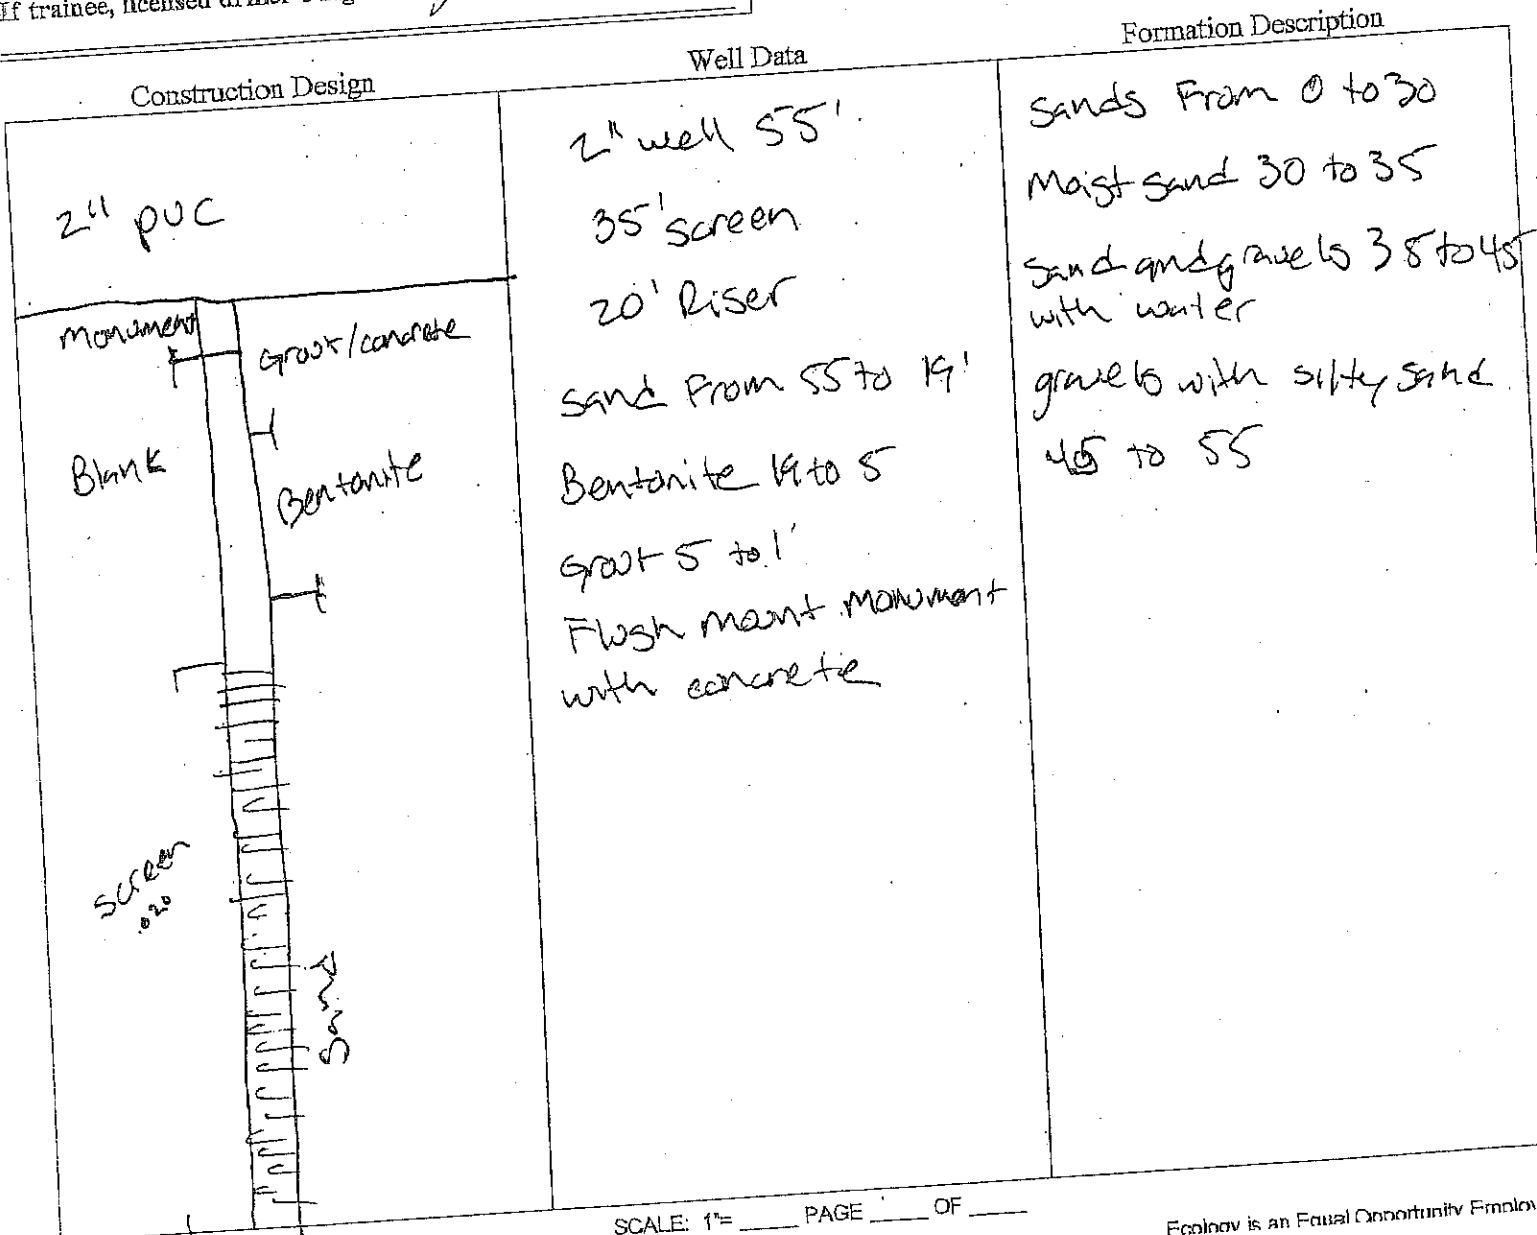 If trainee, licensed
Construction Design
Well Data
Formation Description
2" PVC
Monument
Grout/concrete
Blank
Bentonite
screen
.020
Sand
2" well 55'
35' screen
20' Riser
sand From 55 to 19'
Bentonite 19 to 5
Grout 5 to 1'
Flush mount monument
with concrete
Sands From 0 to 30
Moist sand 30 to 35
Sand and gravels 35 to 45
with water
gravels with silty sand
45 to 55
SCALE: 1"= ____ PAGE ____ OF ____
Ecology is an Equal Opportunity Employ